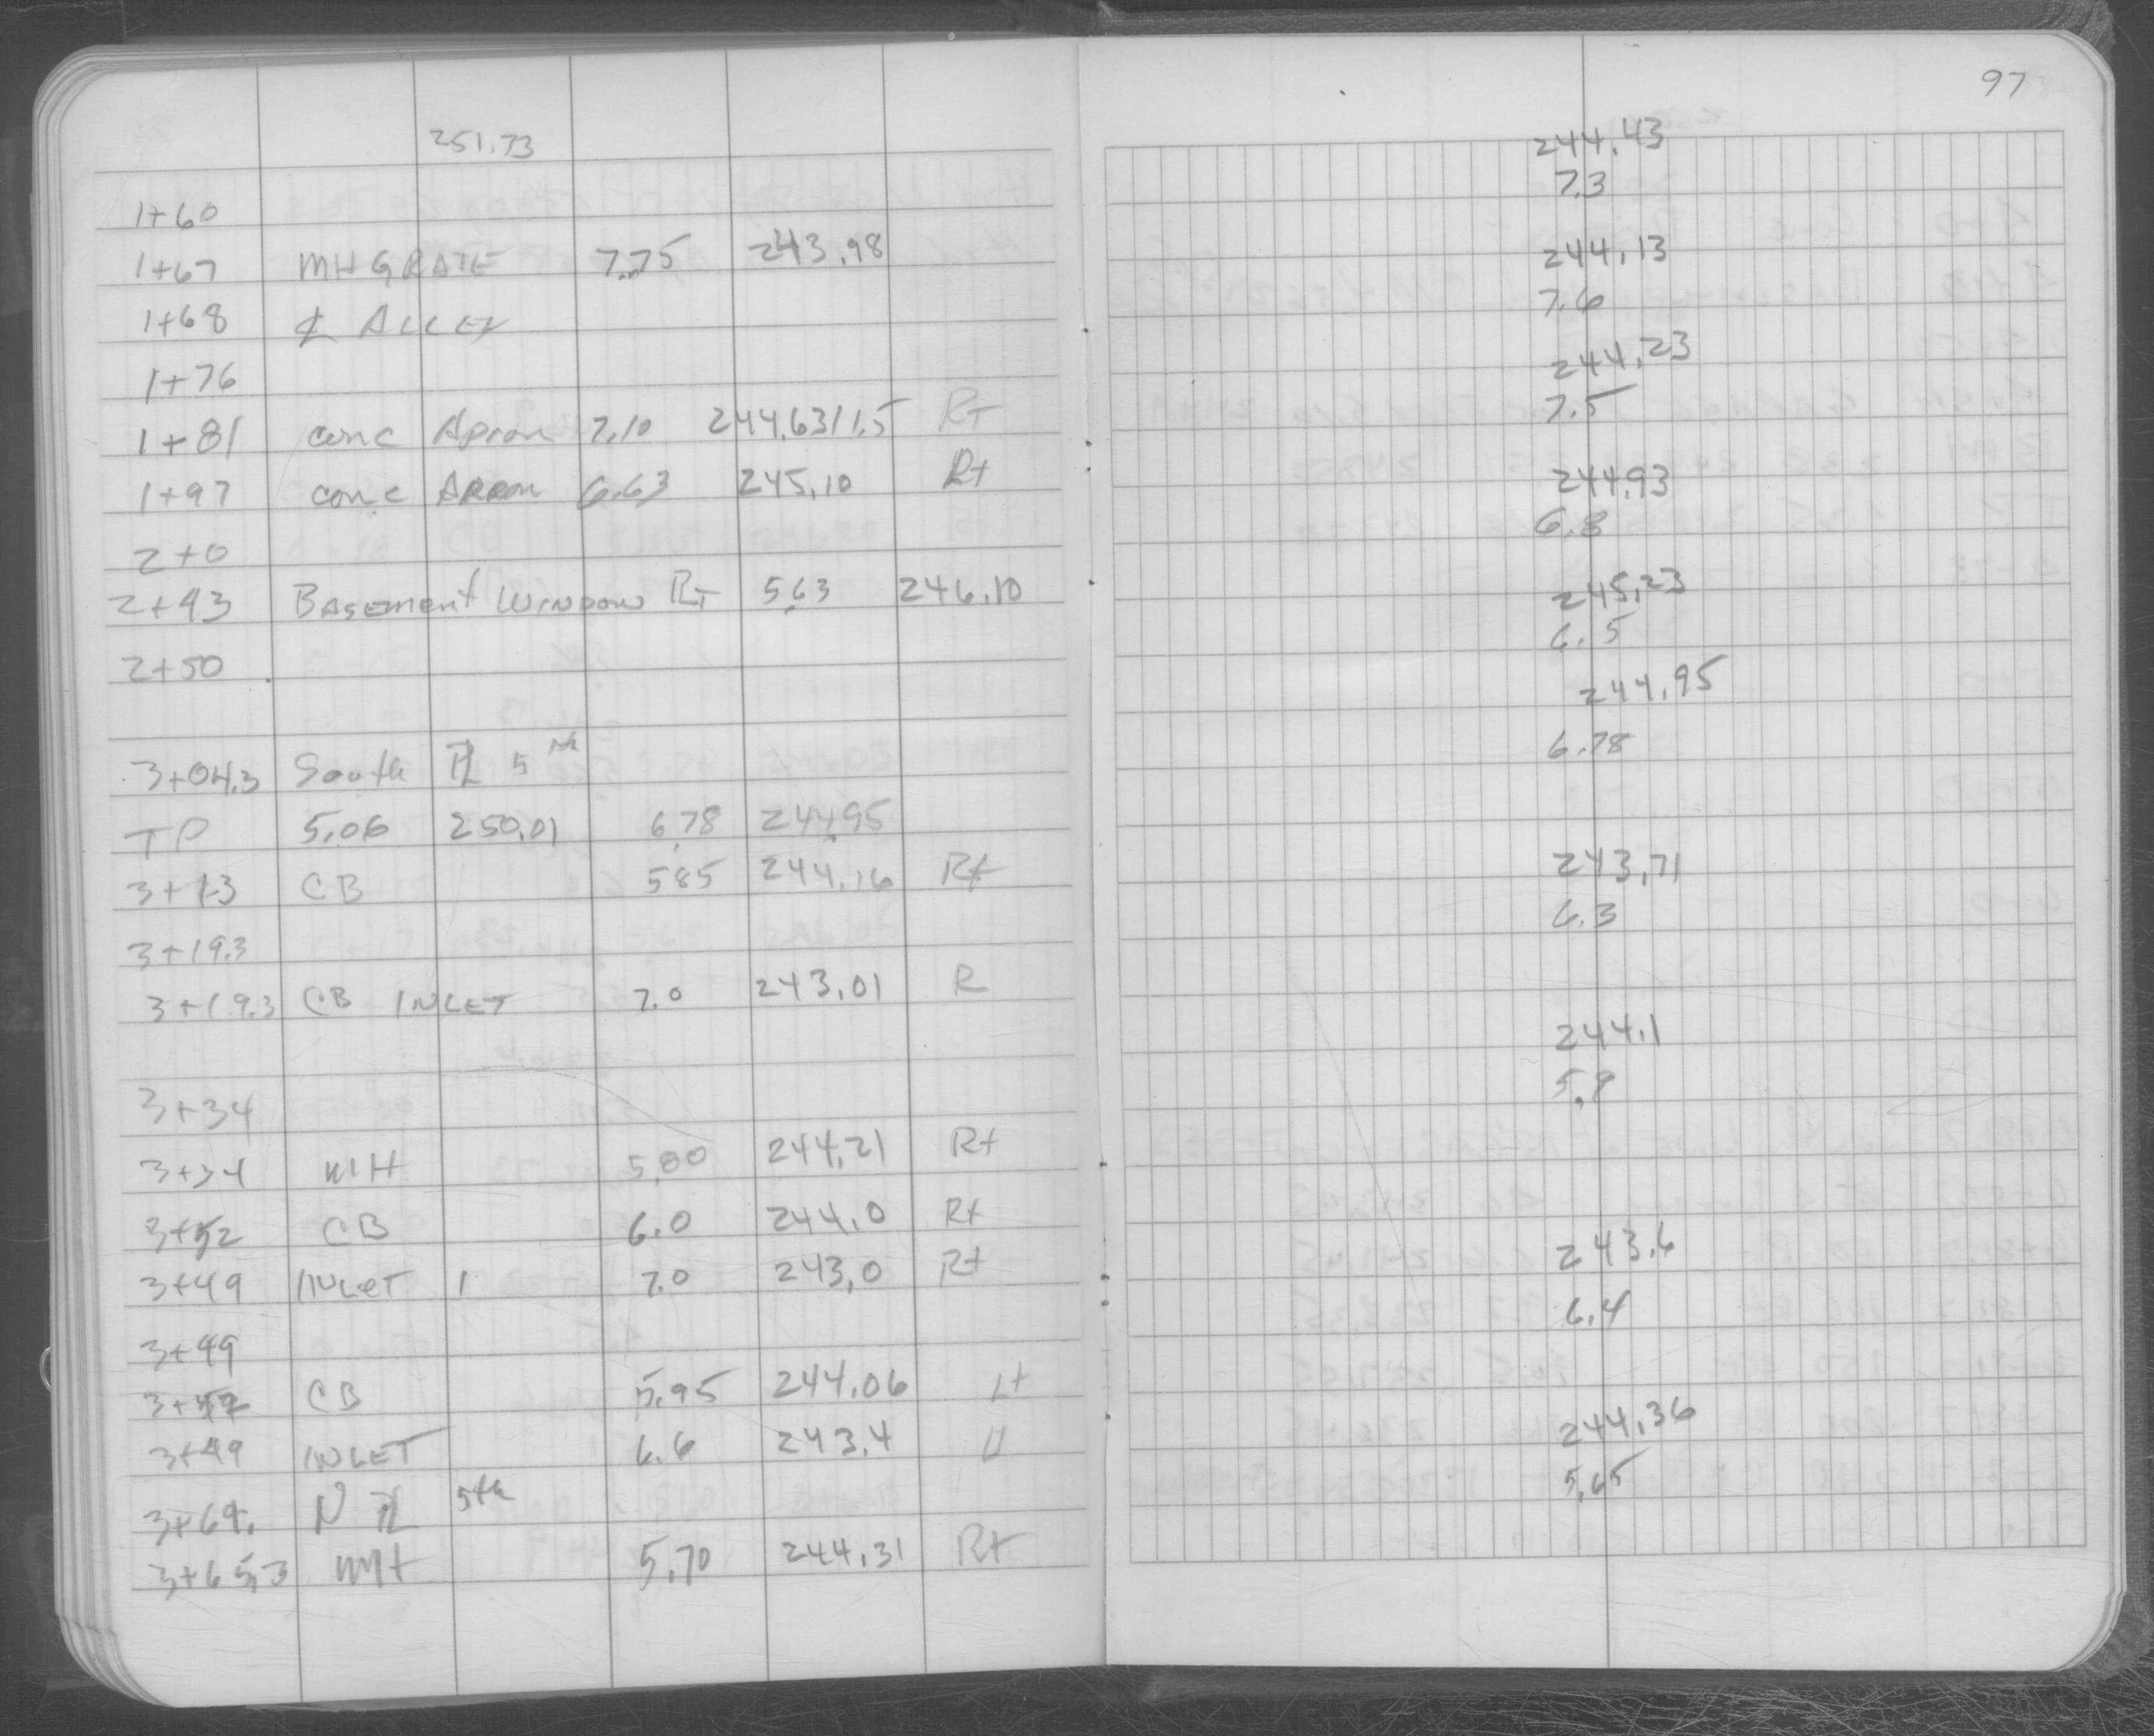 97
251.73
1+60
1+67 MH GRATE 7.75 243.98
1+68 ℄ ALLEY
1+76
1+81 conc Apron 7.10 244.63/1.5 RT
1+97 conc Apron 6.63 245.10 Rt
2+0
2+43 BASEMENT WINDOW RT 5.63 246.10
2+50
3+04.3 South PL 5th
TP 5.06 250.01 6.78 244.95
3+13 CB 5.85 244.16 Rt
3+19.3
3+19.3 CB INLET 7.0 243.01 R
3+34
3+34 MH 5.80 244.21 Rt
3+52 CB 6.0 244.0 Rt
3+49 INLET 1 7.0 243.0 Rt
3+49
CB 5.95 244.06 Lt
3+49 INLET 6.6 243.4 Lt
3+64. N PL 5th
3+65.3 MH 5.70 244.31 Rt
244.43
7.3
244.13
7.6
244.23
7.5
244.93
6.8
245.23
6.5
244.95
6.78
243.71
6.3
244.1
5.9
243.6
6.4
244.36
5.65